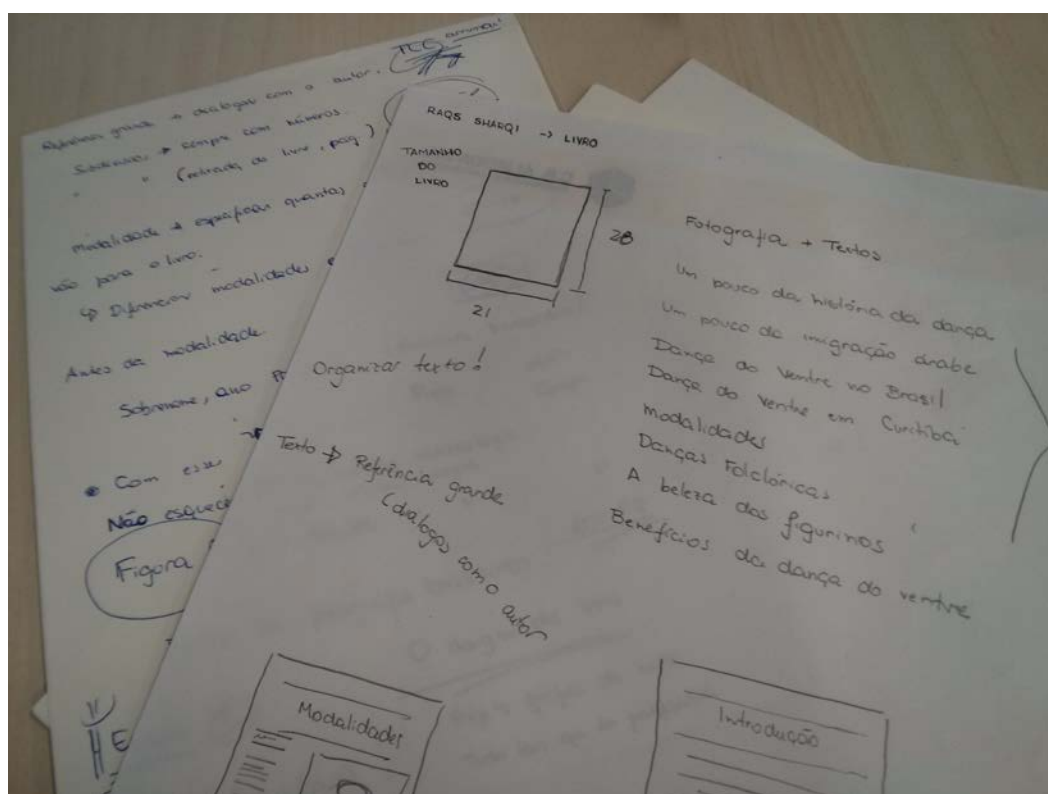 TCC
Referência grande → dialogar com o autor.
sempre com números.
" " (retirada do livro, pag.)
Modalidade → especificar quantas
vão para o livro.
↳ Diferenciar modalidades e
Antes da modalidade.
Sobrenome, ano
• Com esse
Não esquece
Figura
E
RAQS SHARQI -> LIVRO
TAMANHO
DO
LIVRO
28
21
Organizar texto!
Texto → Referência grande
(dialogar com o autor
Fotografia + Textos
Um pouco da história da dança
Um pouco da imigração árabe
Dança do Ventre no Brasil
Dança do ventre em Curitiba
Modalidades
Danças Folclóricas
A beleza dos figurinos
Benefícios da dança do ventre
Modalidades
Introdução